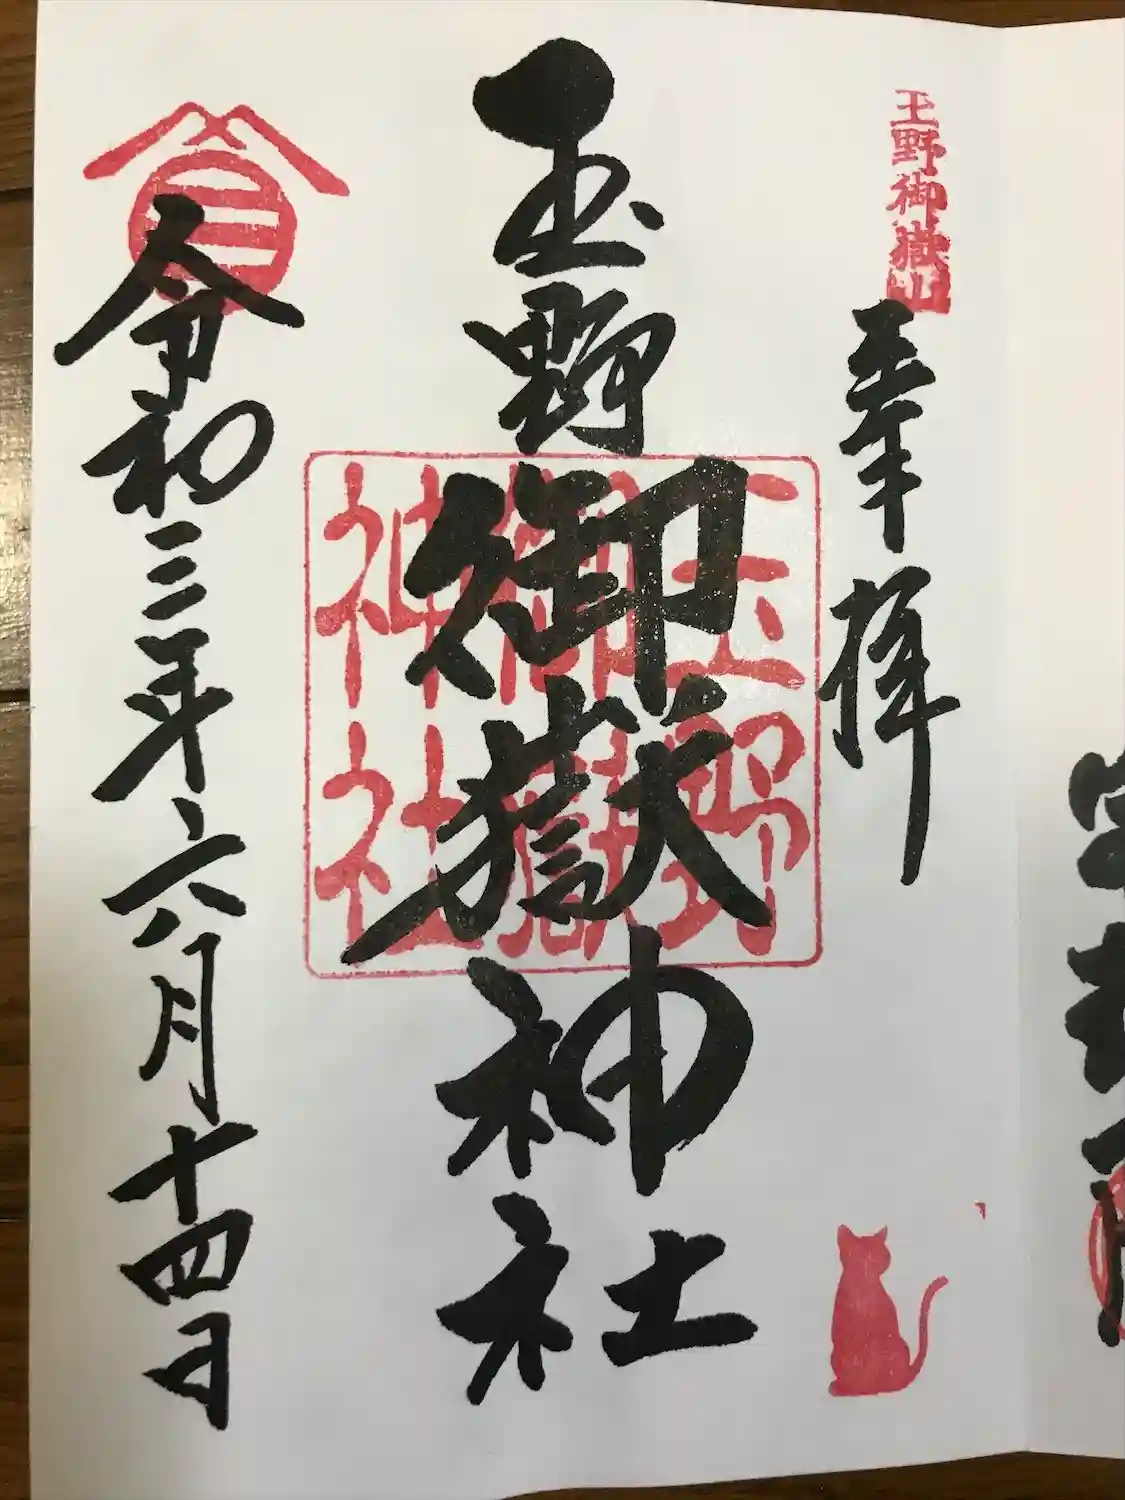 玉野御嶽山
奉拝
玉野御嶽神社
玉野
御嶽
神社
令和三年六月十四日